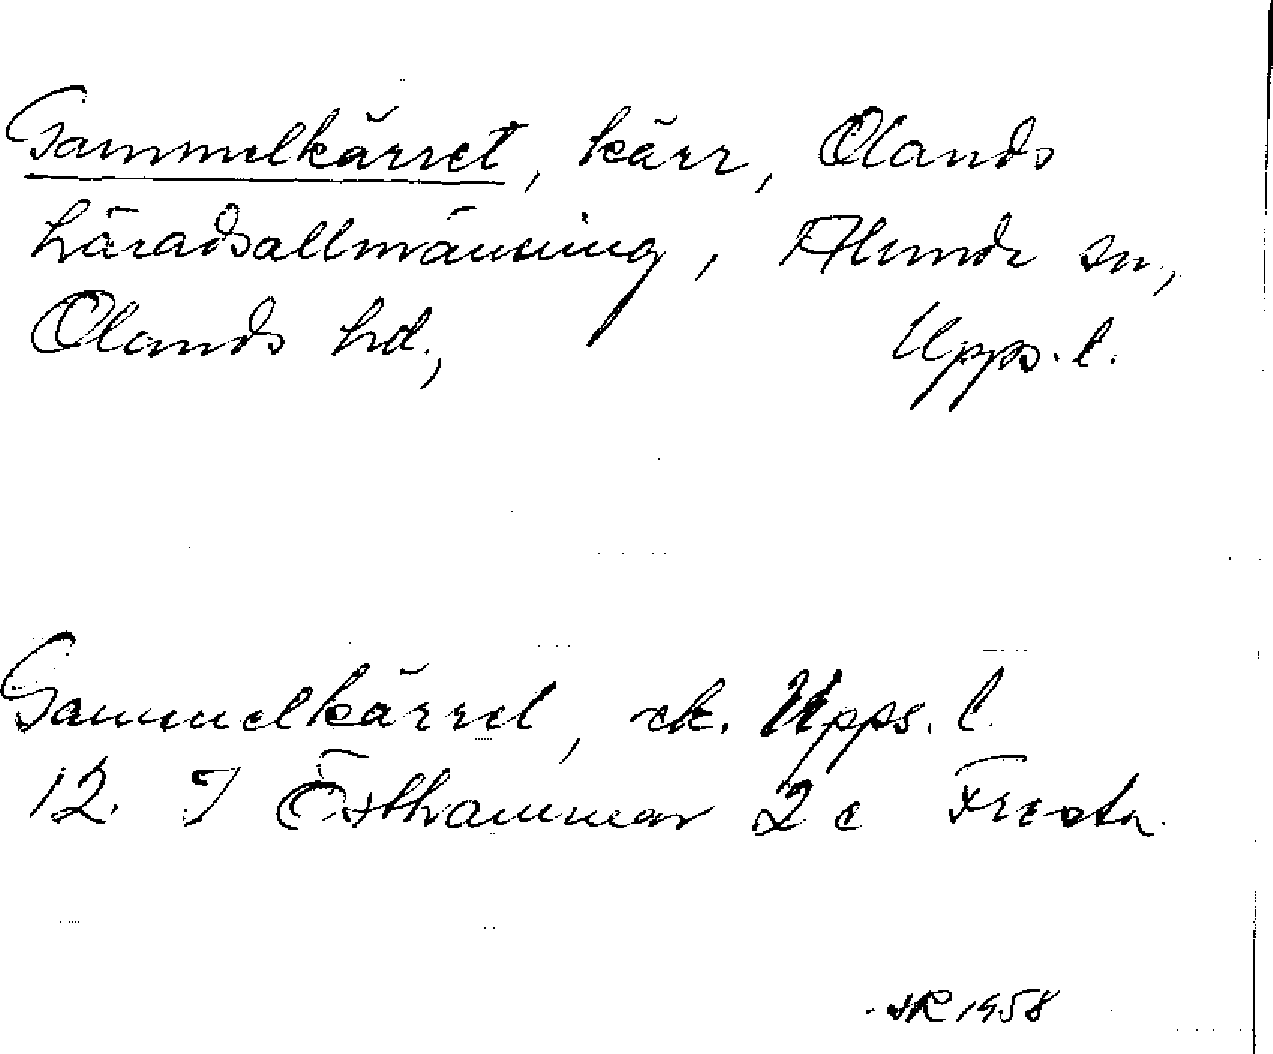 Gammelkärret, kärr, Olands
häradsallmänning, Alunda sn,
Olands hd., Upps. l.
Gammelkärret, ek. Upps. l.
12. I Östhammar 2 c Fresta
1958